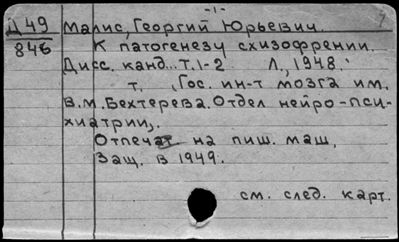 -1-
Д 49 Малис, Георгий Юрьевич.
846 К патогенезу схизофрении.
Дисс. канд... т. 1-2 Л., 1948.
т. , Гос. ин-т мозга им.
В.М. Бехтерева. Отдел нейро-пси-
хиатрии,.
Отпечат на пиш. маш.
Защ. в 1949.
см. след. карт.